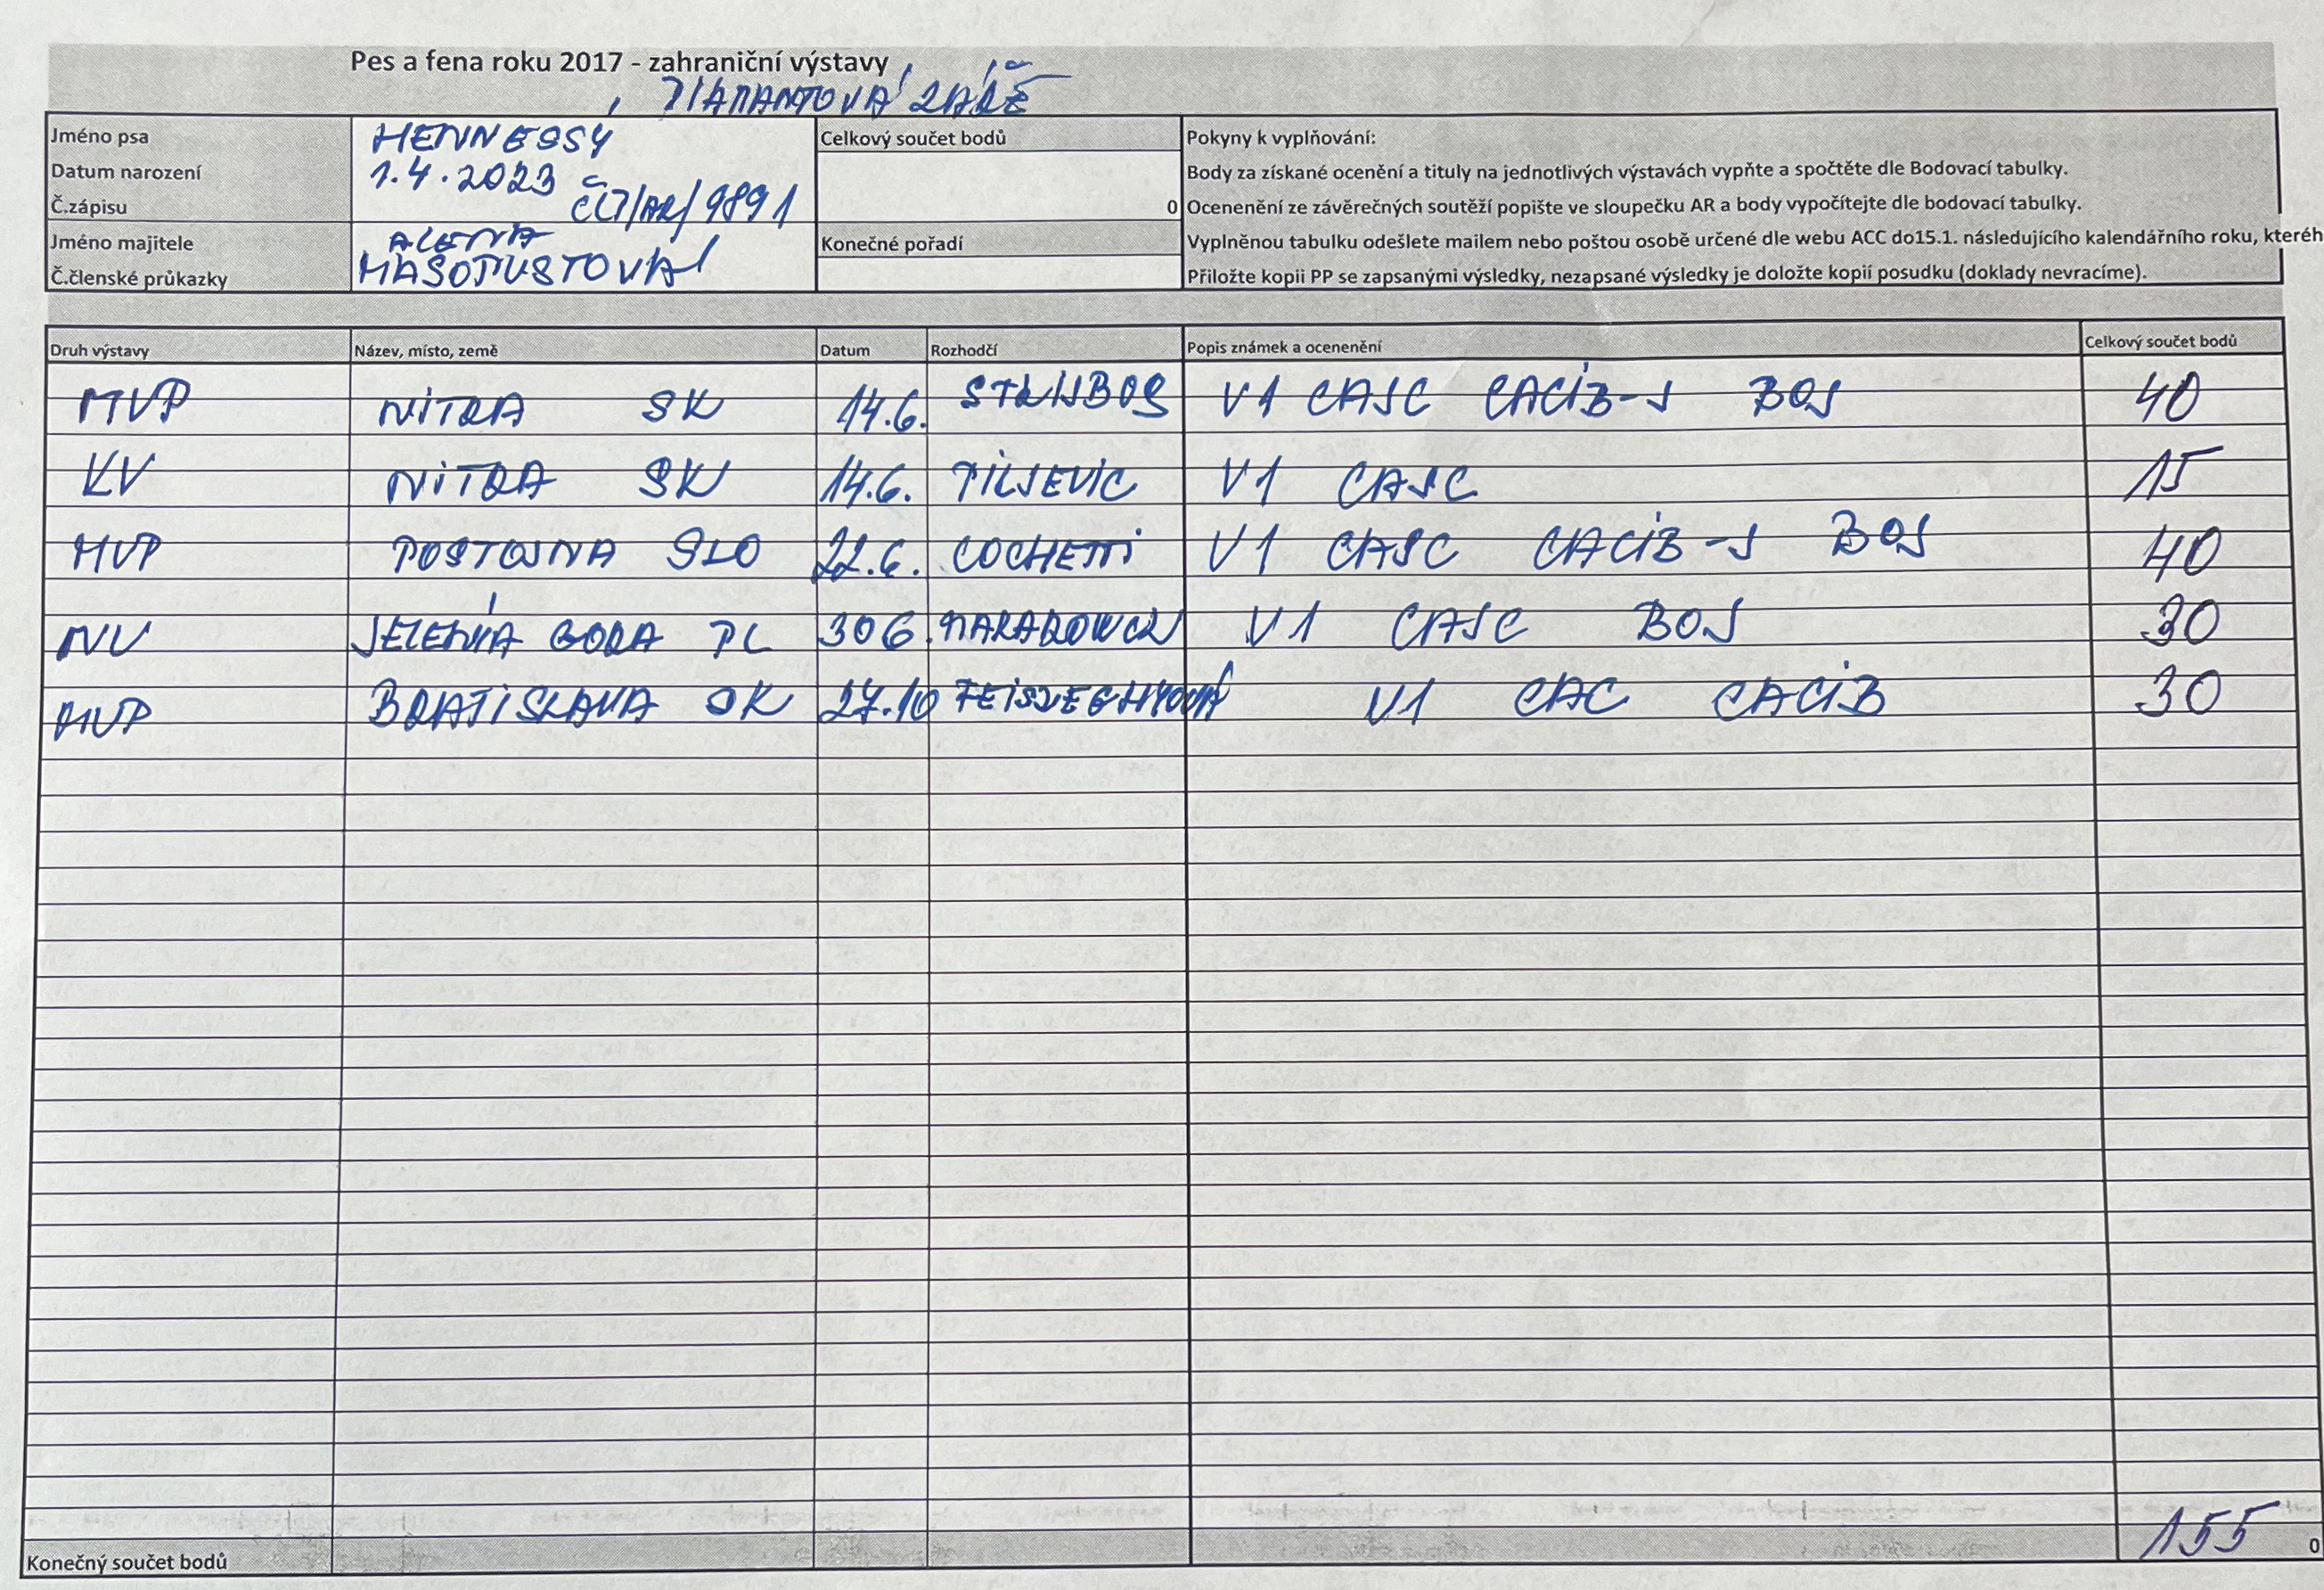 Pes a fena roku 2017 - zahraniční výstavy
DIAMANTOVÁ ZÁŘE
Jméno psa HENNESSY Celkový součet bodů Pokyny k vyplňování:
Datum narození 1.4.2023 Body za získané ocenění a tituly na jednotlivých výstavách vypňte a spočtěte dle Bodovací tabulky.
Č.zápisu ČLP/AR/9891 0 Ocenenění ze závěrečných soutěží popište ve sloupečku AR a body vypočítejte dle bodovací tabulky.
Jméno majitele ALENA Konečné pořadí Vyplněnou tabulku odešlete mailem nebo poštou osobě určené dle webu ACC do15.1. následujícího kalendářního roku, kteréh
Č.členské průkazky MASOPUSTOVÁ Přiložte kopii PP se zapsanými výsledky, nezapsané výsledky je doložte kopií posudku (doklady nevracíme).
Druh výstavy Název, místo, země Datum Rozhodčí Popis známek a ocenenění Celkový součet bodů
MVP NITRA SK 14.6. STRIJBOS V1 CAJC CACIB-J BOJ 40
KV NITRA SK 14.6. PILJEVIC V1 CAJC 15
MVP POSTOJNA SLO 22.6. COCHETTI V1 CAJC CACIB-J BOJ 40
NV JELENIA GORA PL 306. V1 CAJC BOJ 30
MVP BRATISLAVA SK 27.10 V1 CAC CACIB 30
Konečný součet bodů 155 0